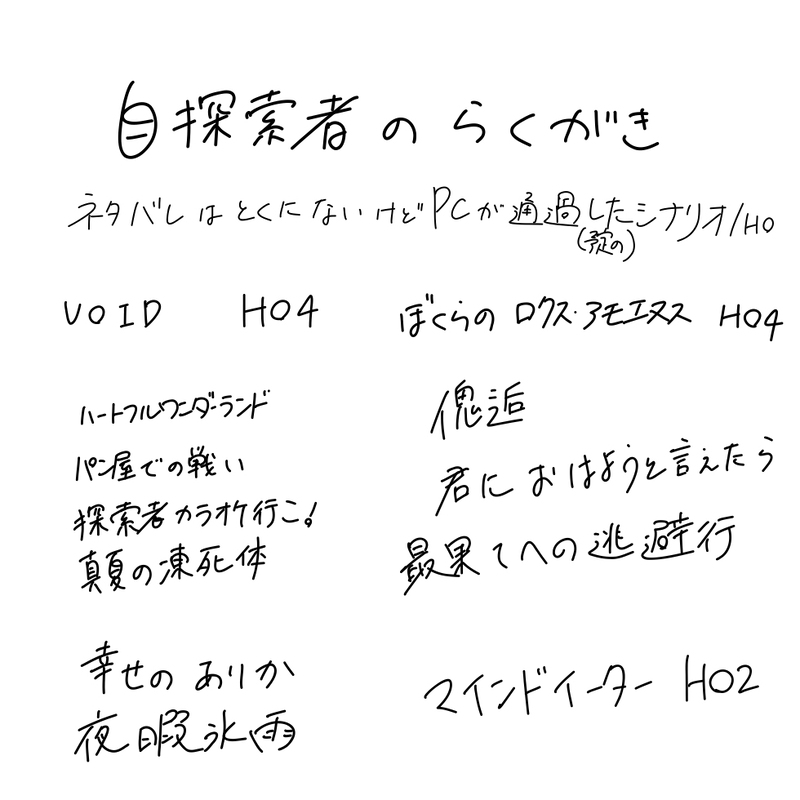 自探索者のらくがき
ネタバレはとくにないけどPCが通過したシナリオ/HO
(予定の)
VOID HO4
ぼくらのロクス・アモエヌス HO4
ハートフルワンダーランド
パン屋での戦い
探索者カラオケ行こ!
真夏の凍死体
傀逅
君におはようと言えたら
最果てへの逃避行
幸せのありか
夜暇氷雨
マインドイーター HO2